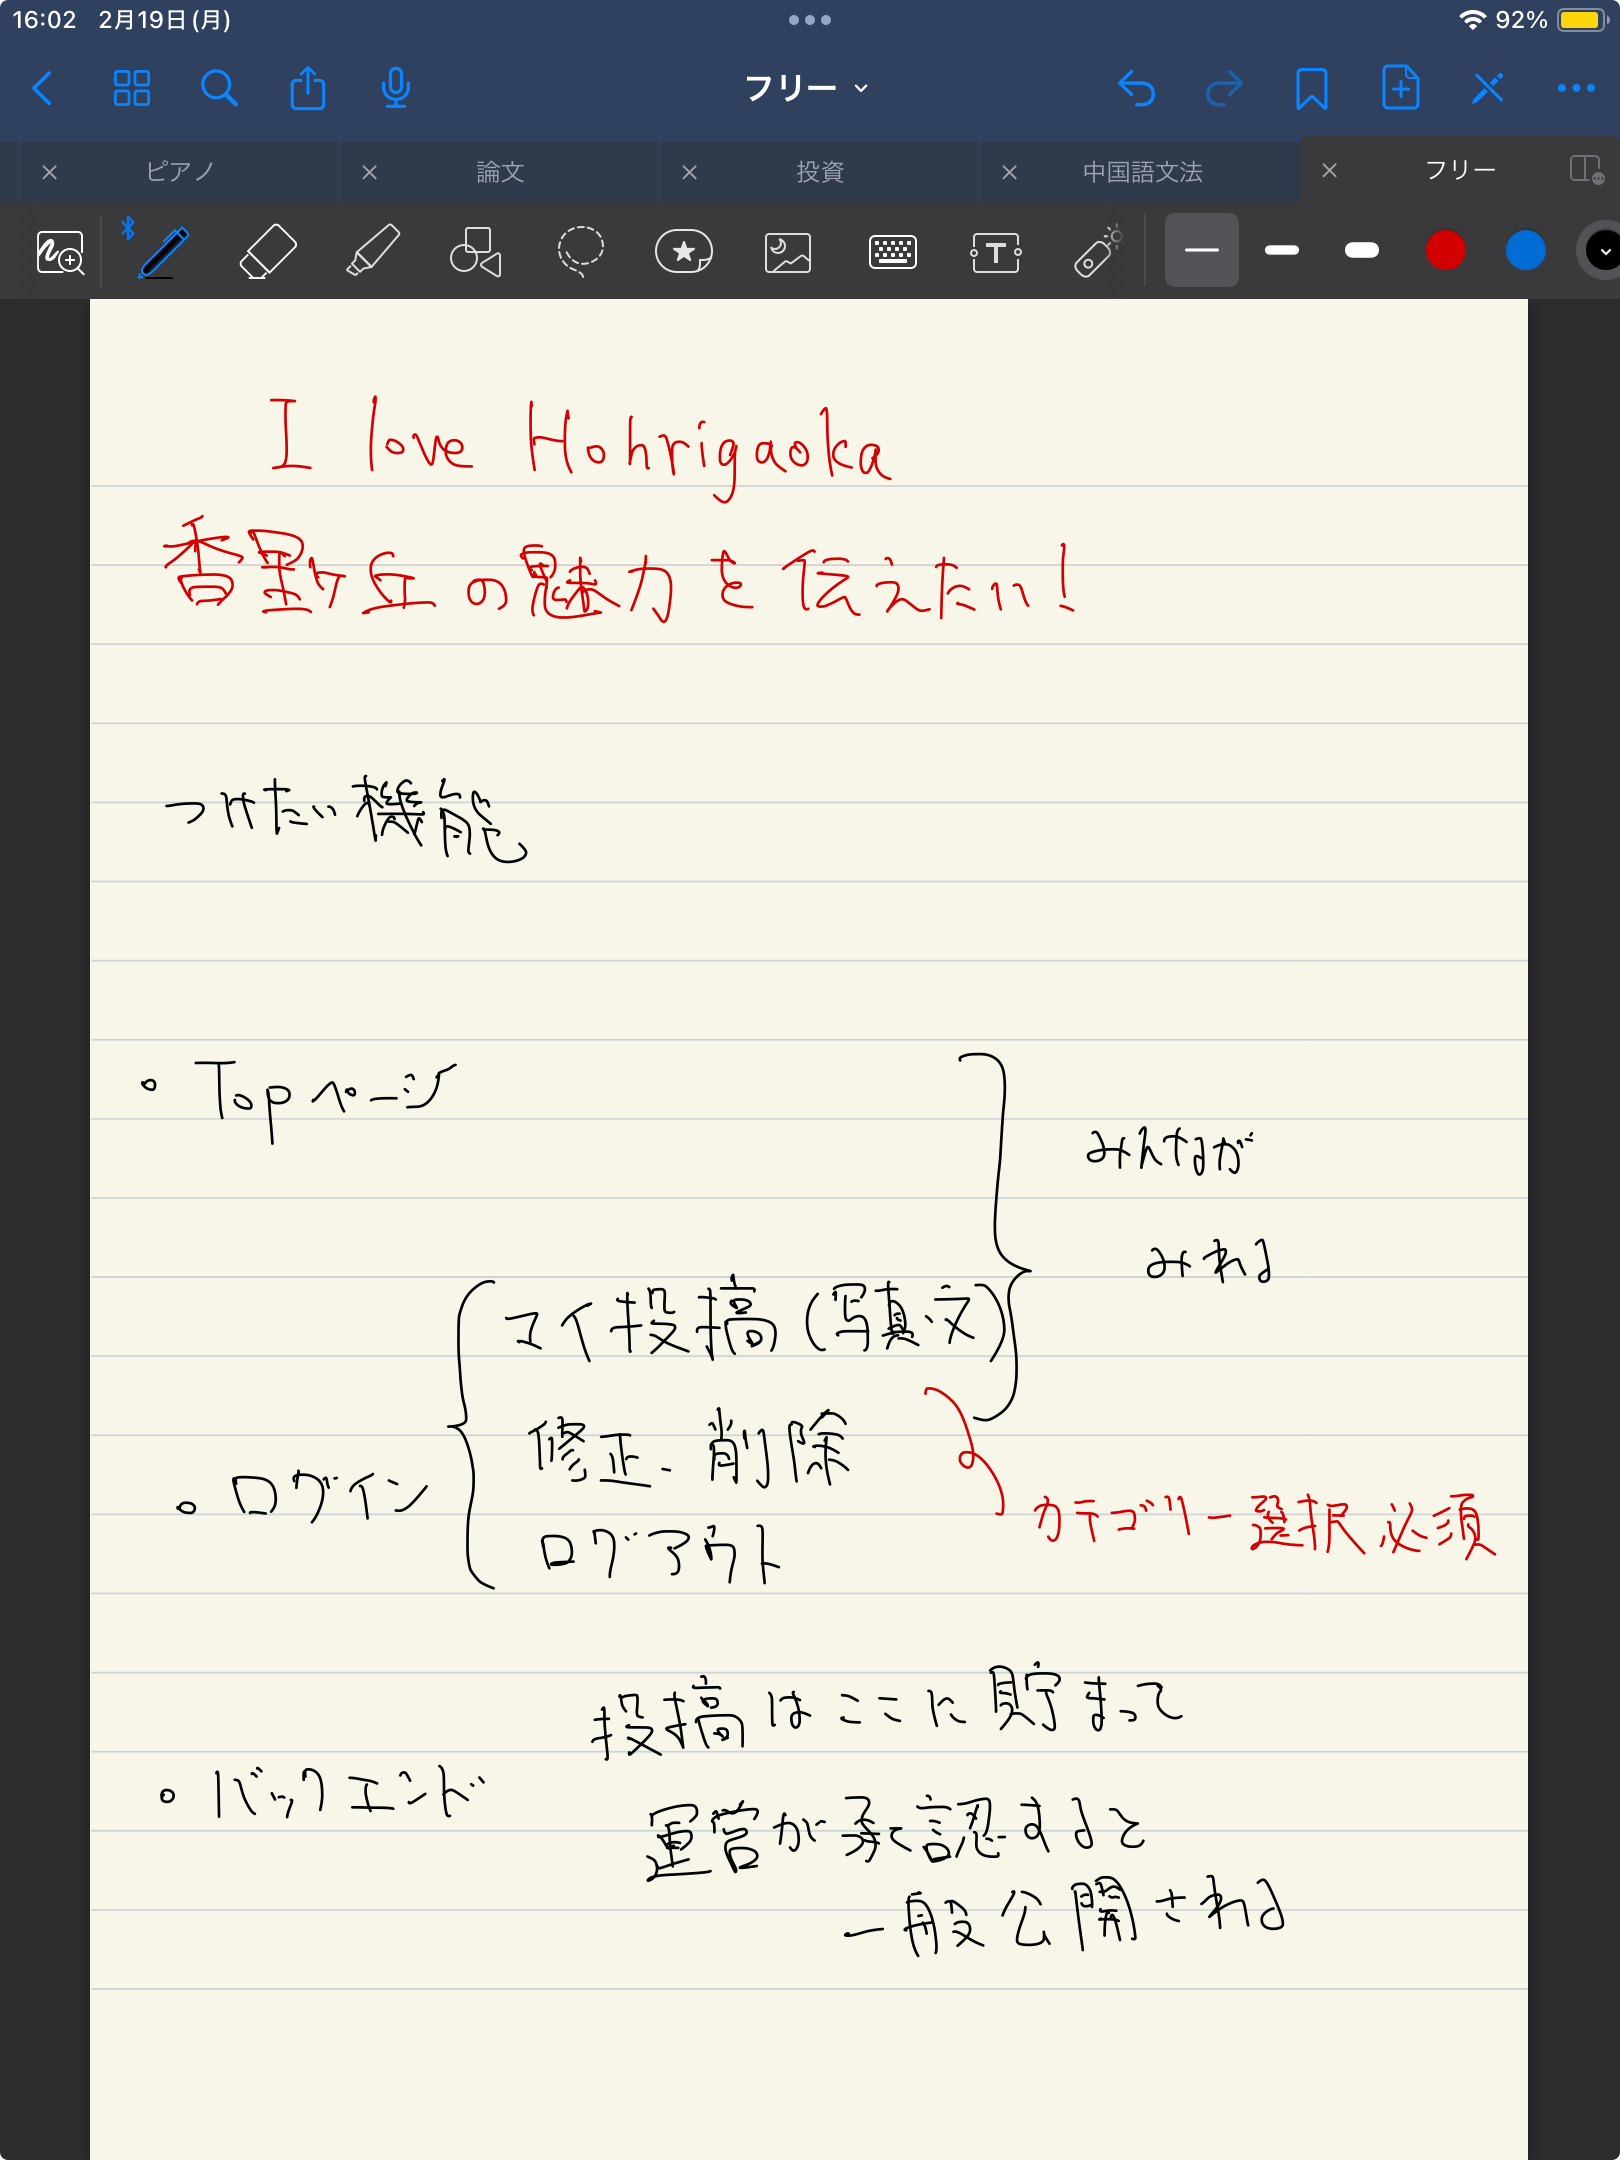 16:02 2月19日(月) 92%
フリー
ピアノ 論文 投資 中国語文法 フリー
I love Hohrigaoka
香里ケ丘の魅力を伝えたい!
つけたい機能
。Topページ
みんなが
みれる
マイ投稿(写真、文)
修正、削除
。ログイン
カテゴリー選択必須
ログアウト
投稿はここに貯まって
。バックエンド
運営が承認すると
一般公開される